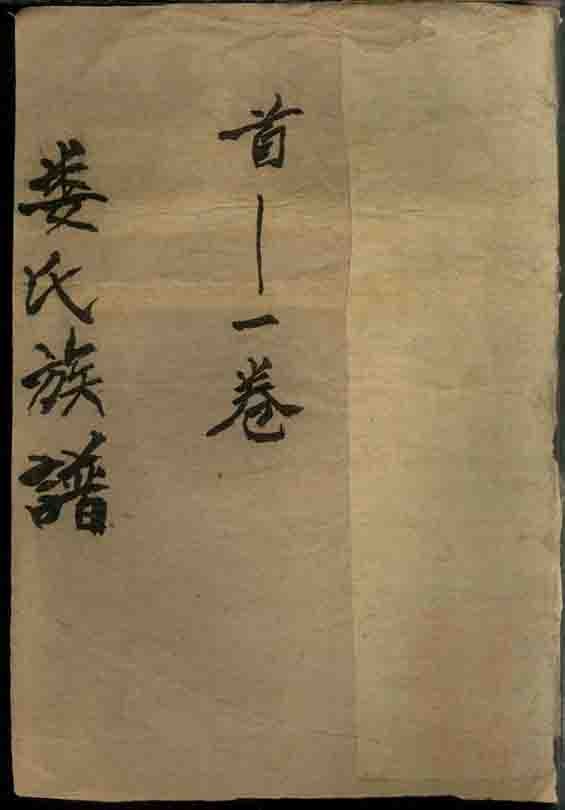 首—一卷
娄氏族譜